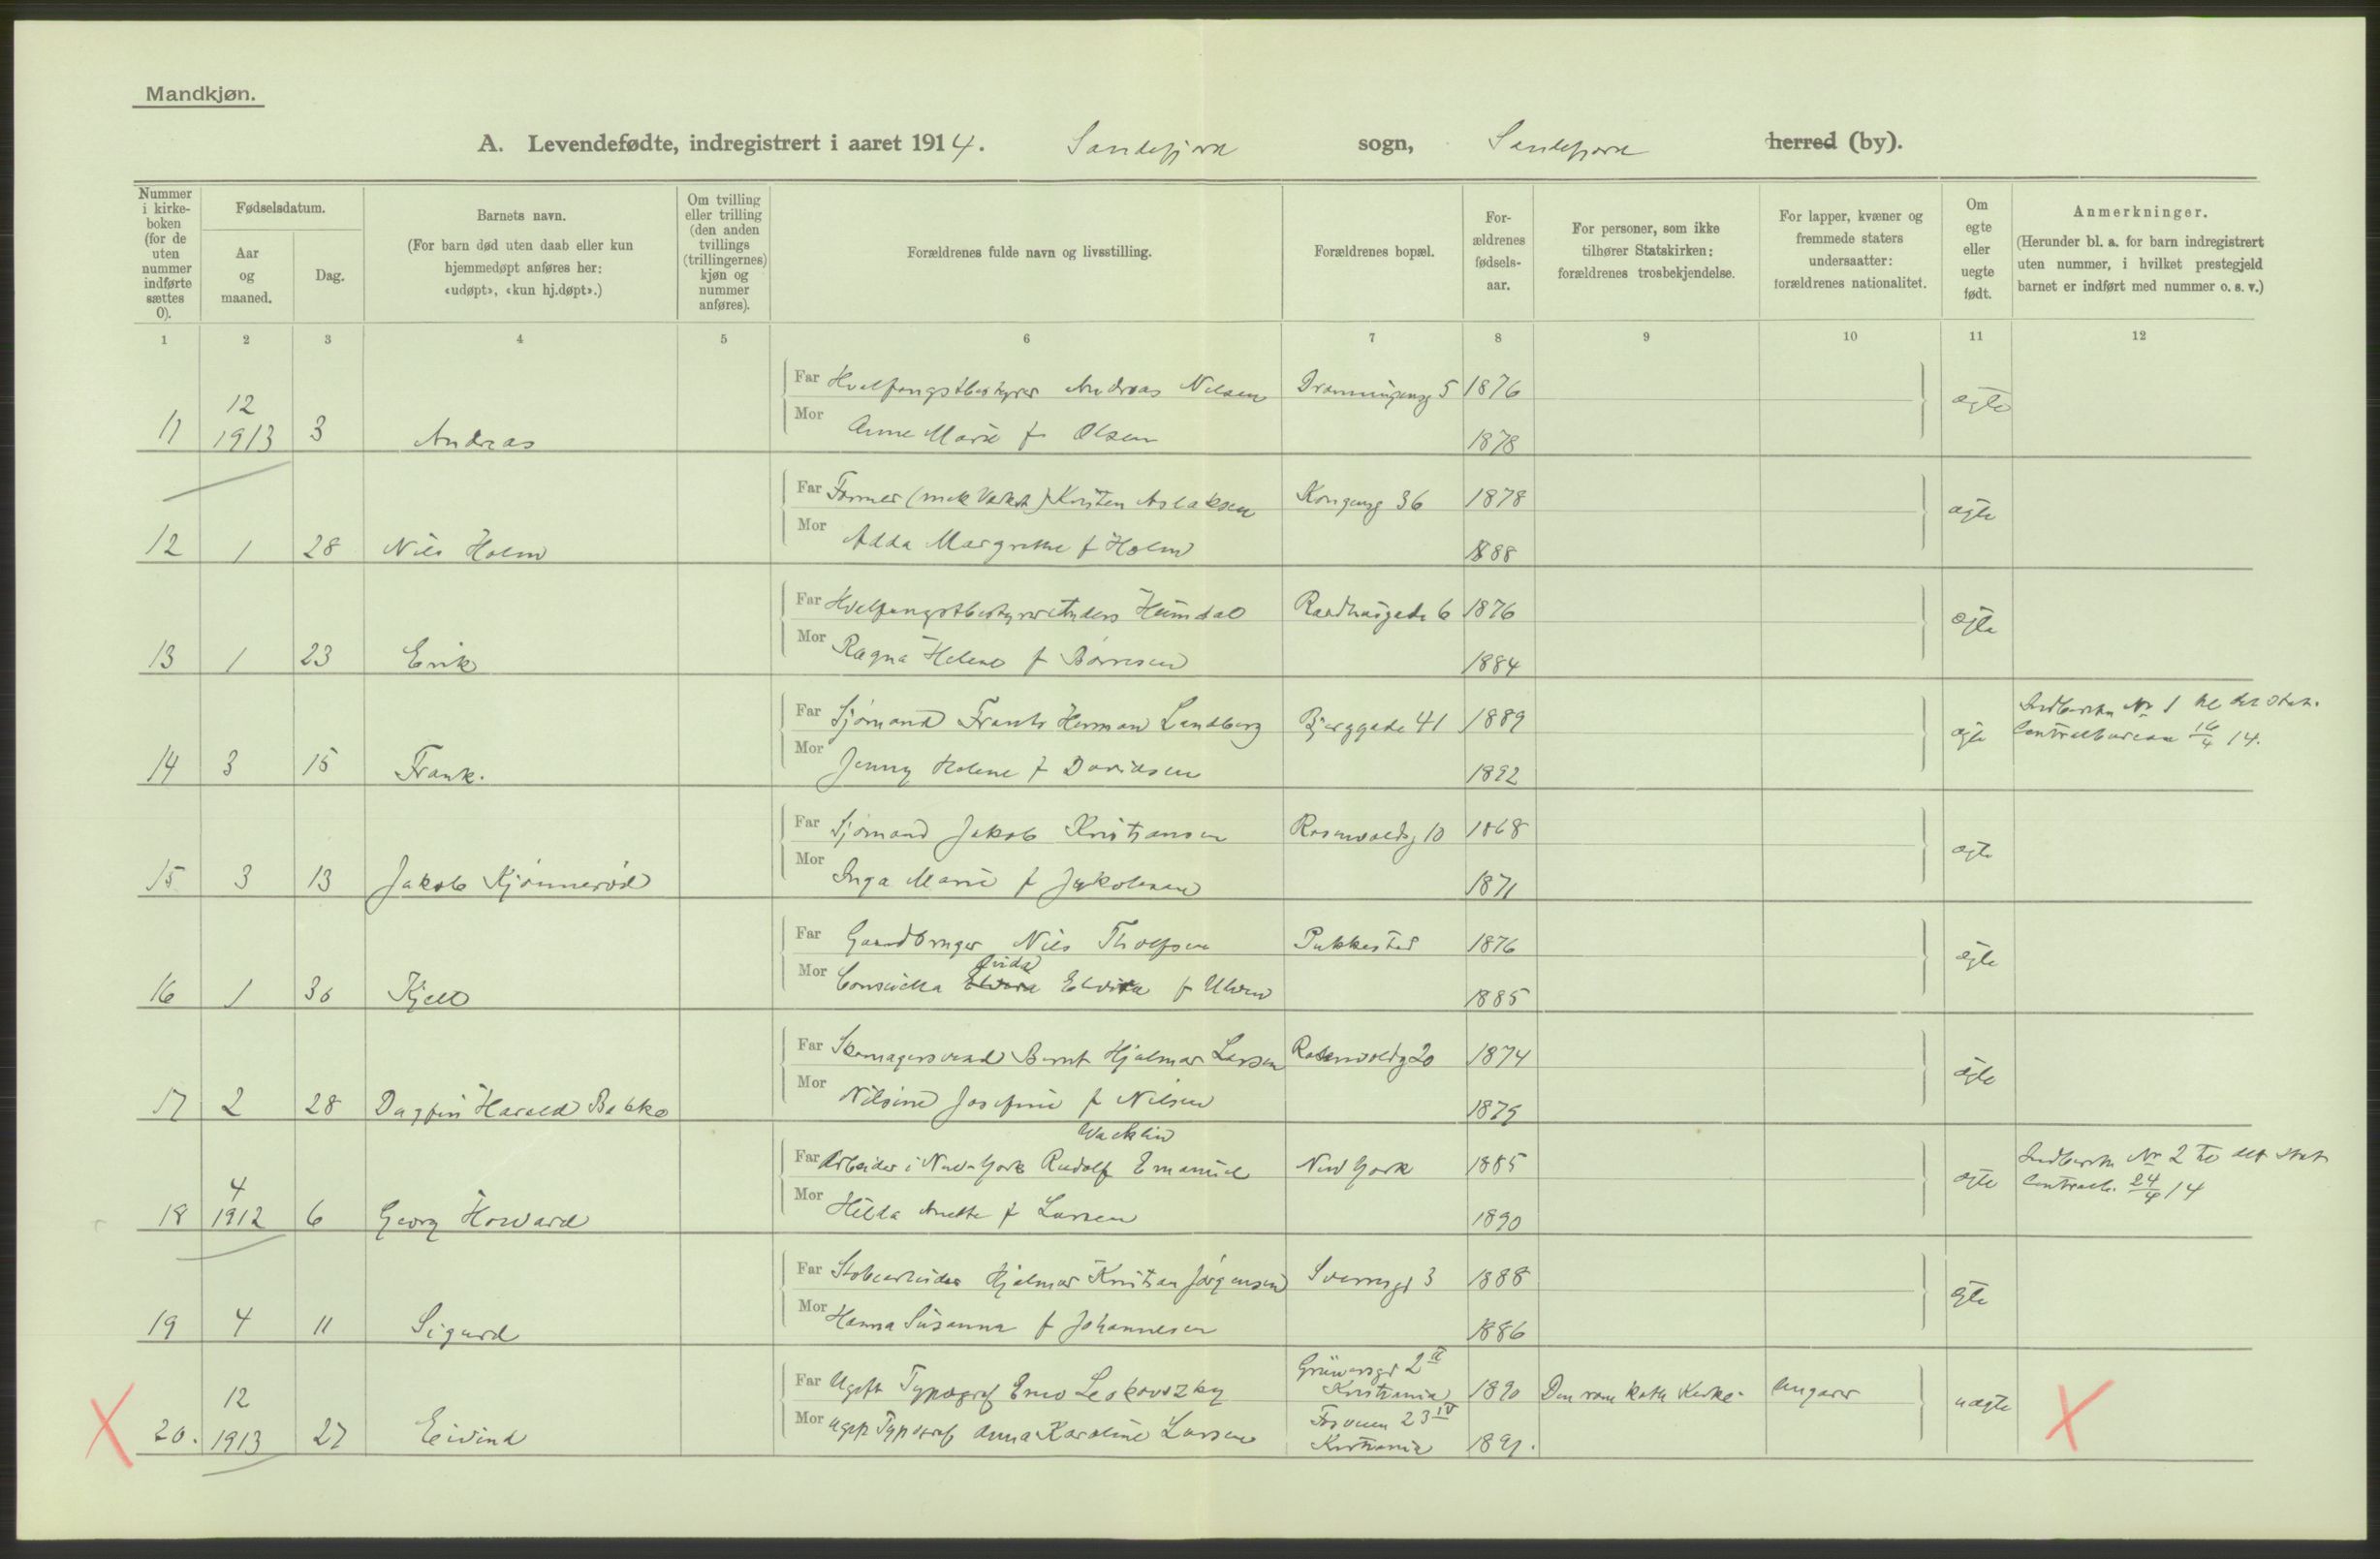 Mandkjøn.
A. Levendefødte, indregistrert i aaret 1914. Sandefjord sogn, Sandefjord herred (by).
Nummer i kirke-boken (for de uten nummer indførte sættes 0).
Fødselsdatum.
Aar og maaned.
Dag.
Barnets navn.
(For barn død uten daab eller kun hjemmedøpt anføres her: «udøpt», «kun hj.døpt».)
Om tvilling eller trilling (den anden tvillings (trillingernes) kjøn og nummer anføres).
Forældrenes fulde navn og livsstilling.
Forældrenes bopæl.
For-ældrenes fødsels-aar.
For personer, som ikke tilhører Statskirken: forældrenes trosbekjendelse.
For lapper, kvæner og fremmede staters undersaatter: forældrenes nationalitet.
Om egte eller uegte født.
Anmerkninger.
(Herunder bl. a. for barn indregistrert uten nummer, i hvilket prestegjeld barnet er indført med nummer o. s. v.)
1 2 3 4 5 6 7 8 9 10 11 12
Far Hvalfangstbestyrer Andreas Nilsen Dronningensg 5 1876
11 12 1913 3 Andreas Mor Anne Marie f Olsen 1878 ægte
Far Former (mek Værkst) Kristen Aslaksen Kongensg 36 1878
12 1 28 Nils Holm Mor Adda Margrethe f Holm 1888 ægte
Far Hvalfangstbestyrer Anders Heimdal Raadhusgade 6 1876
13 1 23 Erik Mor Ragna Helene f Børresen 1884 ægte
Far Sjømand Frants Herman Lundberg Bjerggade 41 1889
14 3 15 Frank. Mor Jenny Helene f Davidsen 1892 ægte
Indberettn Nr 1 til det Stat. Centralbureau 16/4 14.
Far Sjømand Jakob Kristiansen Rosenvoldsg 10 1868
15 3 13 Jakob Kjønnerød Mor Inga Marie f Jakobsen 1871 ægte
Far Gaardbruger Nils Tholfsen Pukkestad 1876
16 1 30 Kjell Mor Elvira f Ulven 1885 ægte
Far Skomagersvend Bernt Hjalmar Larsen Rosenvoldsg 20 1874
17 2 28 Dagfin Harald Bakke Mor Nilsine Josefine f Nilsen 1879 ægte
Wacklin
Far Arbeider i New-York Rudolf Emanuel New York 1885
18 4 1912 6 Georg Howard Mor Hilda Anette f Larsen 1890 ægte
Indberettn Nr 2 til det Stat Centralb. 24/4 14
Far Hjalmar Kristian Jørgensen Sverresgt 3 1888
19 4 11 Sigurd Mor Hanna Susanna f Johannesen 1886 ægte
Far Ugift Typograf Leskovszky Grünersgt 2 II Kristiania 1890 Den rom kath Kirke. Ungarer
20. 12 1913 27 Eivind Mor Ugift Typograf Anna Karoline Larsen 23 IV Kristiania 1891. uægte